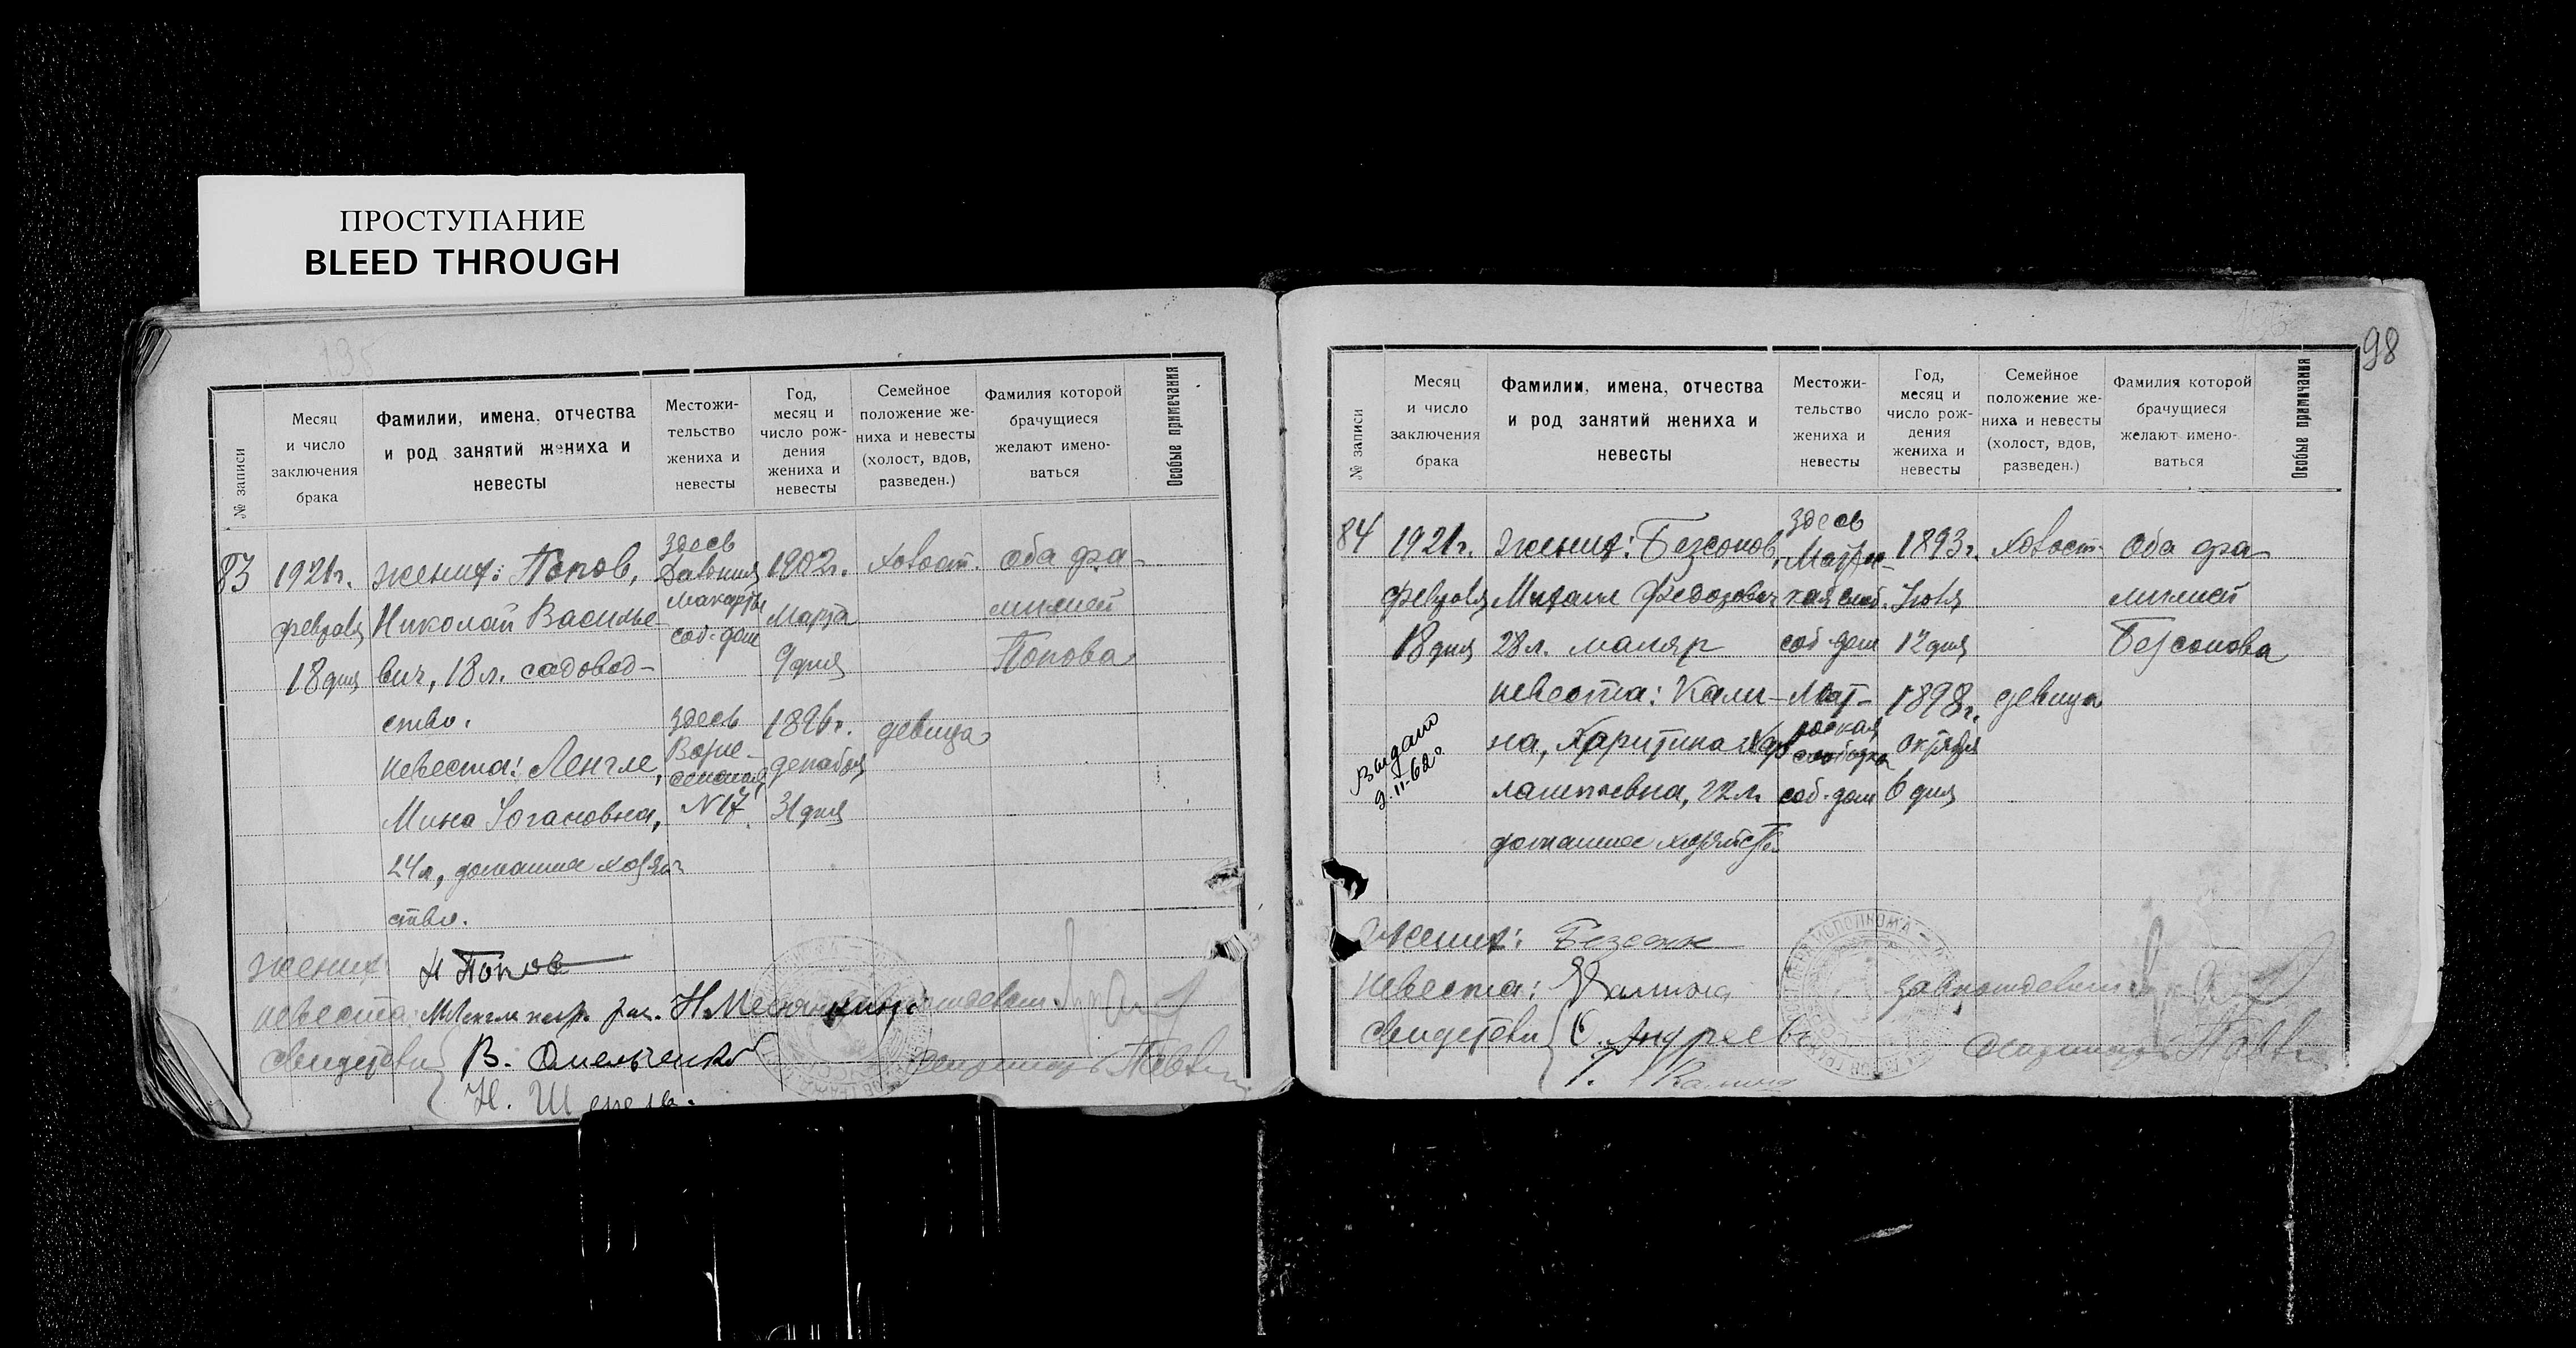 ПРОСТУПАНИЕ
BLEED THROUGH
135
№ записи
Месяц
и число
заключения
брака
Фамилии, имена, отчества
и род занятий жениха и
невесты
Местожи-
тельство
жениха и
невесты
Год,
месяц и
число рож-
дения
жениха и
невесты
Семейное
положение же-
ниха и невесты
(холост, вдов,
разведен.)
Фамилия которой
брачущиеся
желают имено-
ваться
Особые примечания
83
1921г.
февраля
18 дня
жених: Попов,
Николай Василье-
вич, 18 л. садовод-
ство.
невеста: Ленгле,
Мина Югановна,
24 л, домашнее хозяй-
ство.
здесь
соб. дом
здесь
Возне-
сенская,
N 17
1902г.
Марта
9 дня
1896г.
декабря
31 дня
холост.
девица
Оба фа-
милией
Попова
жених
Н Попов
невеста: М Ленгле
свидетели
В. Омельченко
Н.
98
№ записи
Месяц
и число
заключения
брака
Фамилии, имена, отчества
и род занятий жениха и
невесты
Местожи-
тельство
жениха и
невесты
Год,
месяц и
число рож-
дения
жениха и
невесты
Семейное
положение же-
ниха и невесты
(холост, вдов,
разведен.)
Фамилия которой
брачущиеся
желают имено-
ваться
Особые примечания
84
1921г.
февраля
18 дня
жених: Безсонов,
Михаил Федорович
28 л. маляр
невеста: Кали-
на, Харитина Хар
лампиевна, 22 л.
домашнее хозяйство
здесь
соб. дом
слободка
соб. дом
1893г.
Июля
12 дня
1898г.
октября
6 дня
холост.
девица
Оба фа-
милией
Безсонова
Выдано
9.II-62г.
жених:
невеста: Калина
свидетели
С. Андреев
Т. Калина
завподотделом